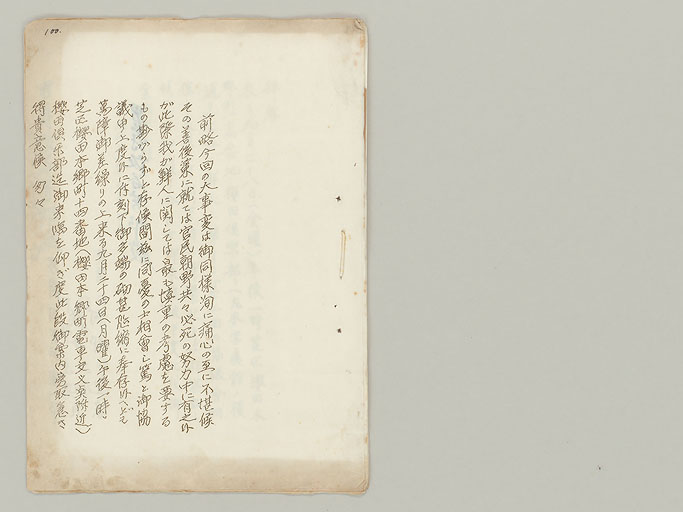 100.
前略今回の大事変は御同様洵に痛心の至に不堪候
その善後策に就ては官民朝野共々必死の努力中に有之候
が此際我が鮮人に関しては最も慎重の考慮を要する
もの尠からずと存候間玆に同憂の士相會し篤と御協
議申上度候に付刻下御多端の砌甚恐縮に奉存候へども
萬障御差繰りの上来る九月二十四日(月曜)午後一時
芝区櫻田本郷町十四番地(櫻田本郷町電車交叉点附近)
櫻田倶楽部迄御来臨を仰ぎ度此段御案内 得貴意候 匆々